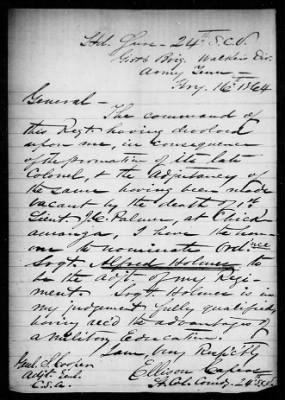 Hd. Qrs. 24th S.C.V.
Gists Brig. Walkers Div.
Army Tenn
Feby. 16th 1864
General -
The command of
this Regt having devolved
upon me, in consequence
of the promotion of its late
Colonel, & the Adjutancy of
the same having been made
vacant by the death of 1st
Lieut. J. C. Palmer, at Chick
amauga, I have the hon-
or to nominate Ordnce
Sergt Alfred Holmes to
be the Adjt. of my Regi-
ment. Sergt Holmes is in
my judgement fully qualified,
having rec'd the advantages of
a military Education.
I am Very Respctly
Ellison Capers
Lt. Col. Comdg. 24th S.C.V.
Genl. S. Cooper
Adjt. Genl.
C.S.A.